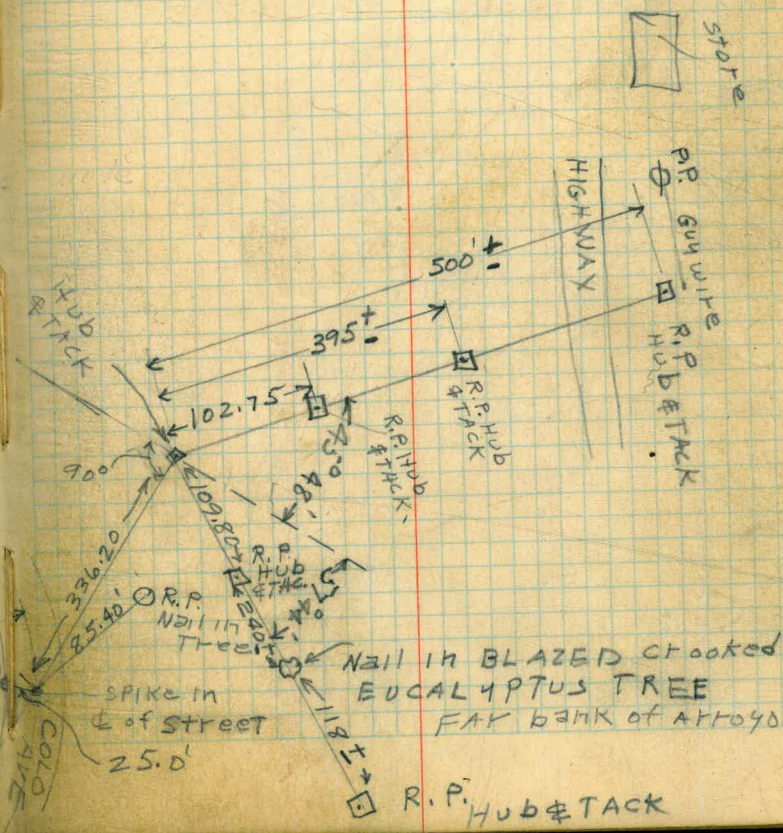 store
P.P. GUY WIRE
HIGHWAY
500' ±
Hub
& TACK
395 ±
R.P.
Hub & TACK
R.P. Hub
& TACK
102.75
R.P. Hub
& TACK
90°
45°
48'
109.80
336.20
R.P.
HUB
& TAC.
240±
85.40'
R.P.
Nail in
Tree
Nail in BLAZED crooked
EUCALYPTUS TREE
FAr bank of Arroyo
SPIKE in
℄ of street
25.0'
118 ±
R.P. Hub & TACK